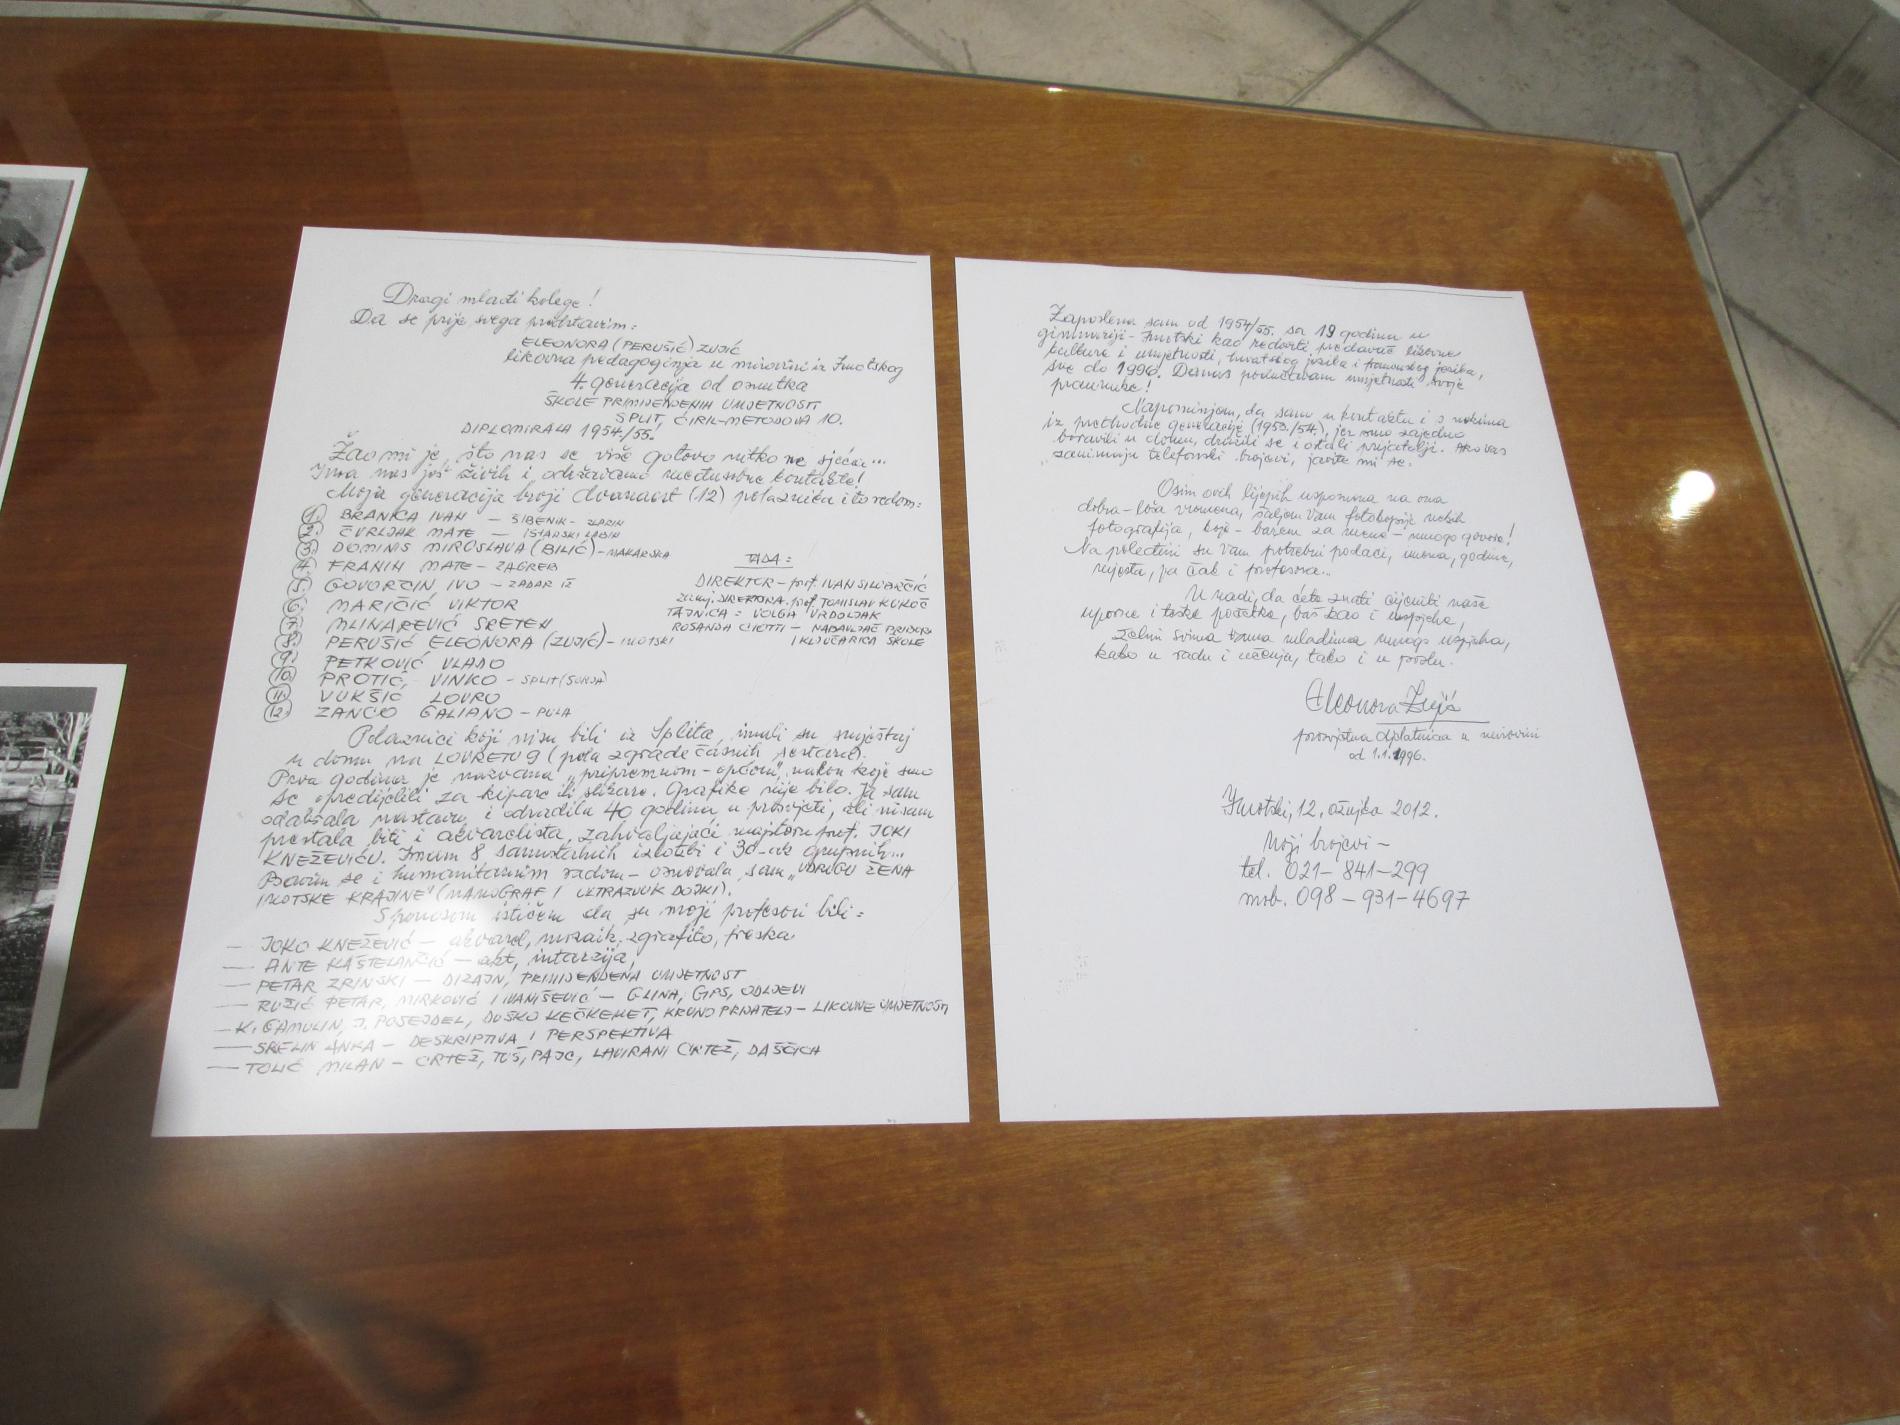 Dragi mladi kolege!
Da se prije svega predstavim:
ELEONORA (PERUŠIĆ) ZUJIĆ
likovna pedagoginja u mirovini iz Imotskog
4. generacija od osnutka
ŠKOLE PRIMIJENJENIH UMJETNOSTI
SPLIT, ĆIRIL-METODOVA 10.
DIPLOMIRALA 1954/55.
Žao mi je, što nas se više gotovo nitko ne sjeća...
Ima nas još živih i održavamo međusobne kontakte!
Moja generacija broji dvanaest (12) polaznika i to redom:
1. BRANICA IVAN - ŠIBENIK - ZLARIN
2. ČVRLJAK MATE - ISTARSKI LABIN
3. DOMINIS MIROSLAVA (BILIĆ) - MAKARSKA
4. FRANIH MATE - ZAGREB
5. GOVORČIN IVO - ZADAR IŽ
6. MARIČIĆ VIKTOR
7. MLINAREVIĆ SRETEN
8. PERUŠIĆ ELEONORA (ZUJIĆ) - IMOTSKI
9. PETKOVIĆ VLADO
10. PROTIĆ, VINKO - SPLIT
11. VUKŠIĆ LOVRO
12. ZANCO GALIANO - PULA
TADA:
DIREKTOR - prof. IVAN
zamj. DIREKTORA - prof. TOMISLAV KUKOČ
TAJNICA: VOLGA VRDOLJAK
ROSANDA CIOTTI - NABAVLJAČ PRIBORA
I KLJUČARICA ŠKOLE
Polaznici koji nisu bili iz Splita, imali su smještaj
u domu na LOVRETU 9 (pola zgrade časnih sestara).
Prva godina je nazvana "pripremnom - općom", nakon koje smo
se opredijelili za kipare ili slikare. Grafike nije bilo. Ja sam
odabrala nastavu i odradila 40 godina u prosvjeti, ali nisam
prestala biti i akvarelista, zahvaljujući majstoru prof. JOKI
KNEŽEVIĆU. Imam 8 samostalnih izložbi i 30-ak grupnih...
Bavim se i humanitarnim radom - osnovala sam "UDRUGU ŽENA
IMOTSKE KRAJINE" (MAMOGRAF I ULTRAZVUK DOJKI).
S ponosom ističem da su moji profesori bili:
- JOKO KNEŽEVIĆ - akvarel, mozaik, zgrafito, freska
- ANTE KAŠTELANČIĆ - akt, intarzija,
- PETAR ZRINSKI - DIZAJN, PRIMIJENJENA UMJETNOST
- RUŽIĆ PETAR, MIRKOVIĆ I IVANIŠEVIĆ - GLINA, GIPS, ODLJEVI
- K. GAMULIN, J. POSEJDEL, DUŠKO KEČKEMET, KRUNO PRIJATELJ - LIKOVNE UMJETNOSTI
- SRELIN ANKA - DESKRIPTIVA I PERSPEKTIVA
- TOLIĆ MILAN - CRTEŽ, TUŠ, PAJC, LAVIRANI CRTEŽ, DAŠČICA
Zaposlena sam od 1954/55. sa 19 godina u
gimnaziji - Imotski kao redoviti predavač likovne
kulture i umjetnosti, hrvatskog jezika i francuskog jezika,
sve do 1996. Danas podučavam umjetnosti svoje
praunuke!
Napominjem, da sam u kontaktu i s nekima
iz prethodne generacije (1953/54), jer smo zajedno
boravili u domu, družili se i ostali prijatelji. Ako vas
zanimaju telefonski brojevi, javite mi se.
Osim ovih lijepih uspomena na ona
dobra-loša vremena, šaljem Vam fotokopije nekih
fotografija, koje - barem za mene - mnogo govore!
Na poleđini su Vam potrebni podaci, imena, godine,
mjesta, pa čak i profesora...
U nadi, da ćete znati cijeniti naše
uporne i teške početke, baš kao i uspjehe,
želim svima Vama mladima mnogo uspjeha,
kako u radu i učenju, tako i u poslu.
Eleonora Zujić
prosvjetna djelatnica u mirovini
od 1.1.1996.
Imotski, 12. ožujka 2012.
Moji brojevi -
tel. 021-841-299
mob. 098-931-4697